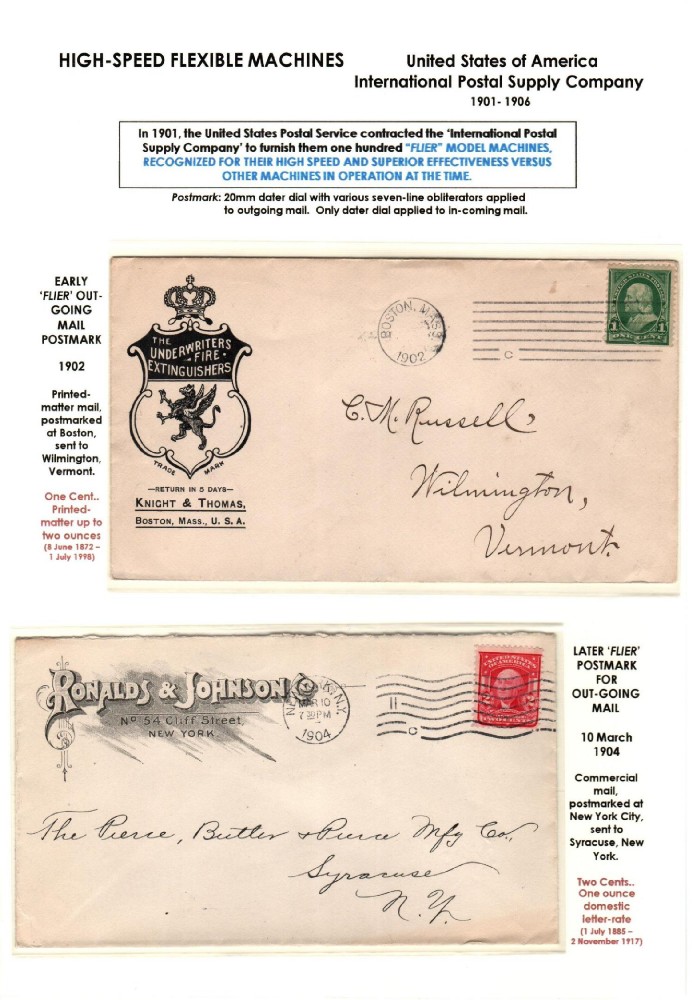 HIGH-SPEED FLEXIBLE MACHINES
United States of America
International Postal Supply Company
1901- 1906
In 1901, the United States Postal Service contracted the 'International Postal
Supply Company' to furnish them one hundred "FLIER" MODEL MACHINES,
RECOGNIZED FOR THEIR HIGH SPEED AND SUPERIOR EFFECTIVENESS VERSUS
OTHER MACHINES IN OPERATION AT THE TIME.
Postmark: 20mm dater dial with various seven-line obliterators applied
to outgoing mail. Only dater dial applied to in-coming mail.
EARLY
'FLIER' OUT-
GOING
MAIL
POSTMARK
1902
Printed-
matter mail,
postmarked
at Boston,
sent to
Wilmington,
Vermont.
One Cent..
Printed-
matter up to
two ounces
(8 June 1872 –
1 July 1998)
THE
UNDERWRITERS
FIRE
EXTINGUISHERS
TRADE MARK
—RETURN IN 5 DAYS—
KNIGHT & THOMAS,
BOSTON, MASS., U. S. A.
BOSTON, MASS
1902
C
1 1
ONE CENT
C. M. Russell,
Wilmington,
Vermont.
RONALDS & JOHNSON Co
No 54 Cliff Street,
NEW YORK
N.Y.
MAR 10
7 30 PM
1904
C
UNITED STATES
OF AMERICA
2 2
TWO CENTS
The Pierce, Butler & Pierce Mfg Co.,
Syracuse
N. Y.
LATER 'FLIER'
POSTMARK
FOR
OUT-GOING
MAIL
10 March
1904
Commercial
mail,
postmarked at
New York City,
sent to
Syracuse, New
York.
Two Cents..
One ounce
domestic
letter-rate
(1 July 1885 –
2 November 1917)